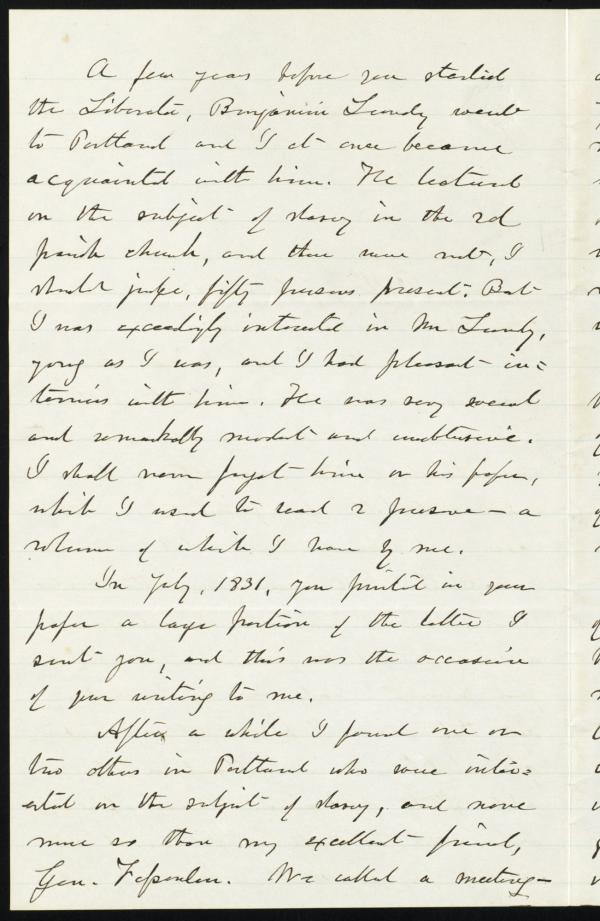 A few years before you started
the Liberator, Benjamin Lundy went
to Portland and I at once became
acquainted with him. He lectured
on the subject of slavery in the 2d
parish church, and there were not, I
should judge, fifty persons present. But
I was exceedingly interested in Mr Lundy,
young as I was, and I had pleasant in=
terviews with him. He was very social
and remarkably modest and unobtrusive.
I shall never forget him or his paper,
which I used to read & preserve — a
volume of which I have by me.
In July, 1831, you printed in your
paper a large portion of the letter I
sent you, and this was the occasion
of your writing to me.
After a while I found one or
two others in Portland who were inter=
ested on the subject of slavery, and none
more so than my excellent friend,
Gen. Fessenden. We called a meeting—